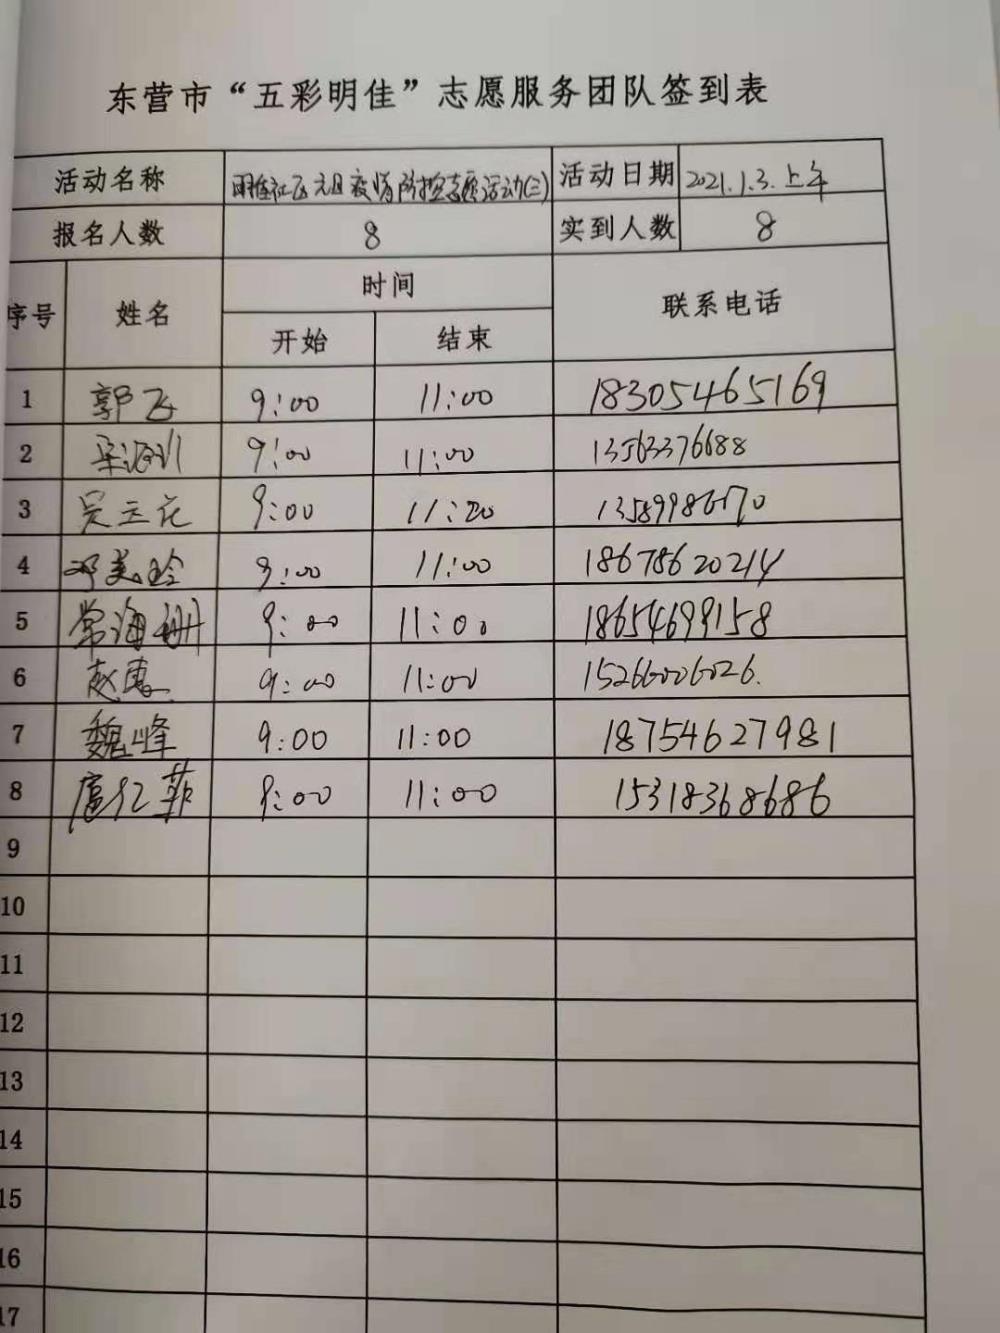 东营市“五彩明佳”志愿服务团队签到表
活动名称 明佳社区元旦疫情防控志愿活动(三) 活动日期 2021.1.3.上午
报名人数 8 实到人数 8
序号 姓名 时间 联系电话
开始 结束
1 郭飞 9:00 11:00 18305465169
2 9:00 11:00 13563376688
3 吴立花 9:00 11:20
4 邓美玲 9:00 11:00 18678620214
5 常海珊 9:00 11:00 18654699158
6 赵惠 9:00 11:00 15266006026.
7 魏峰 9:00 11:00 18754627981
8 扈红菲 9:00 11:00 15318368686
9
10
11
12
13
14
15
16
17